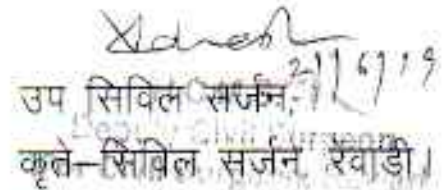 उप सिविल सर्जन,
Deputy Civil Surgeon
कृते-सिविल सर्जन, रेवाड़ी।